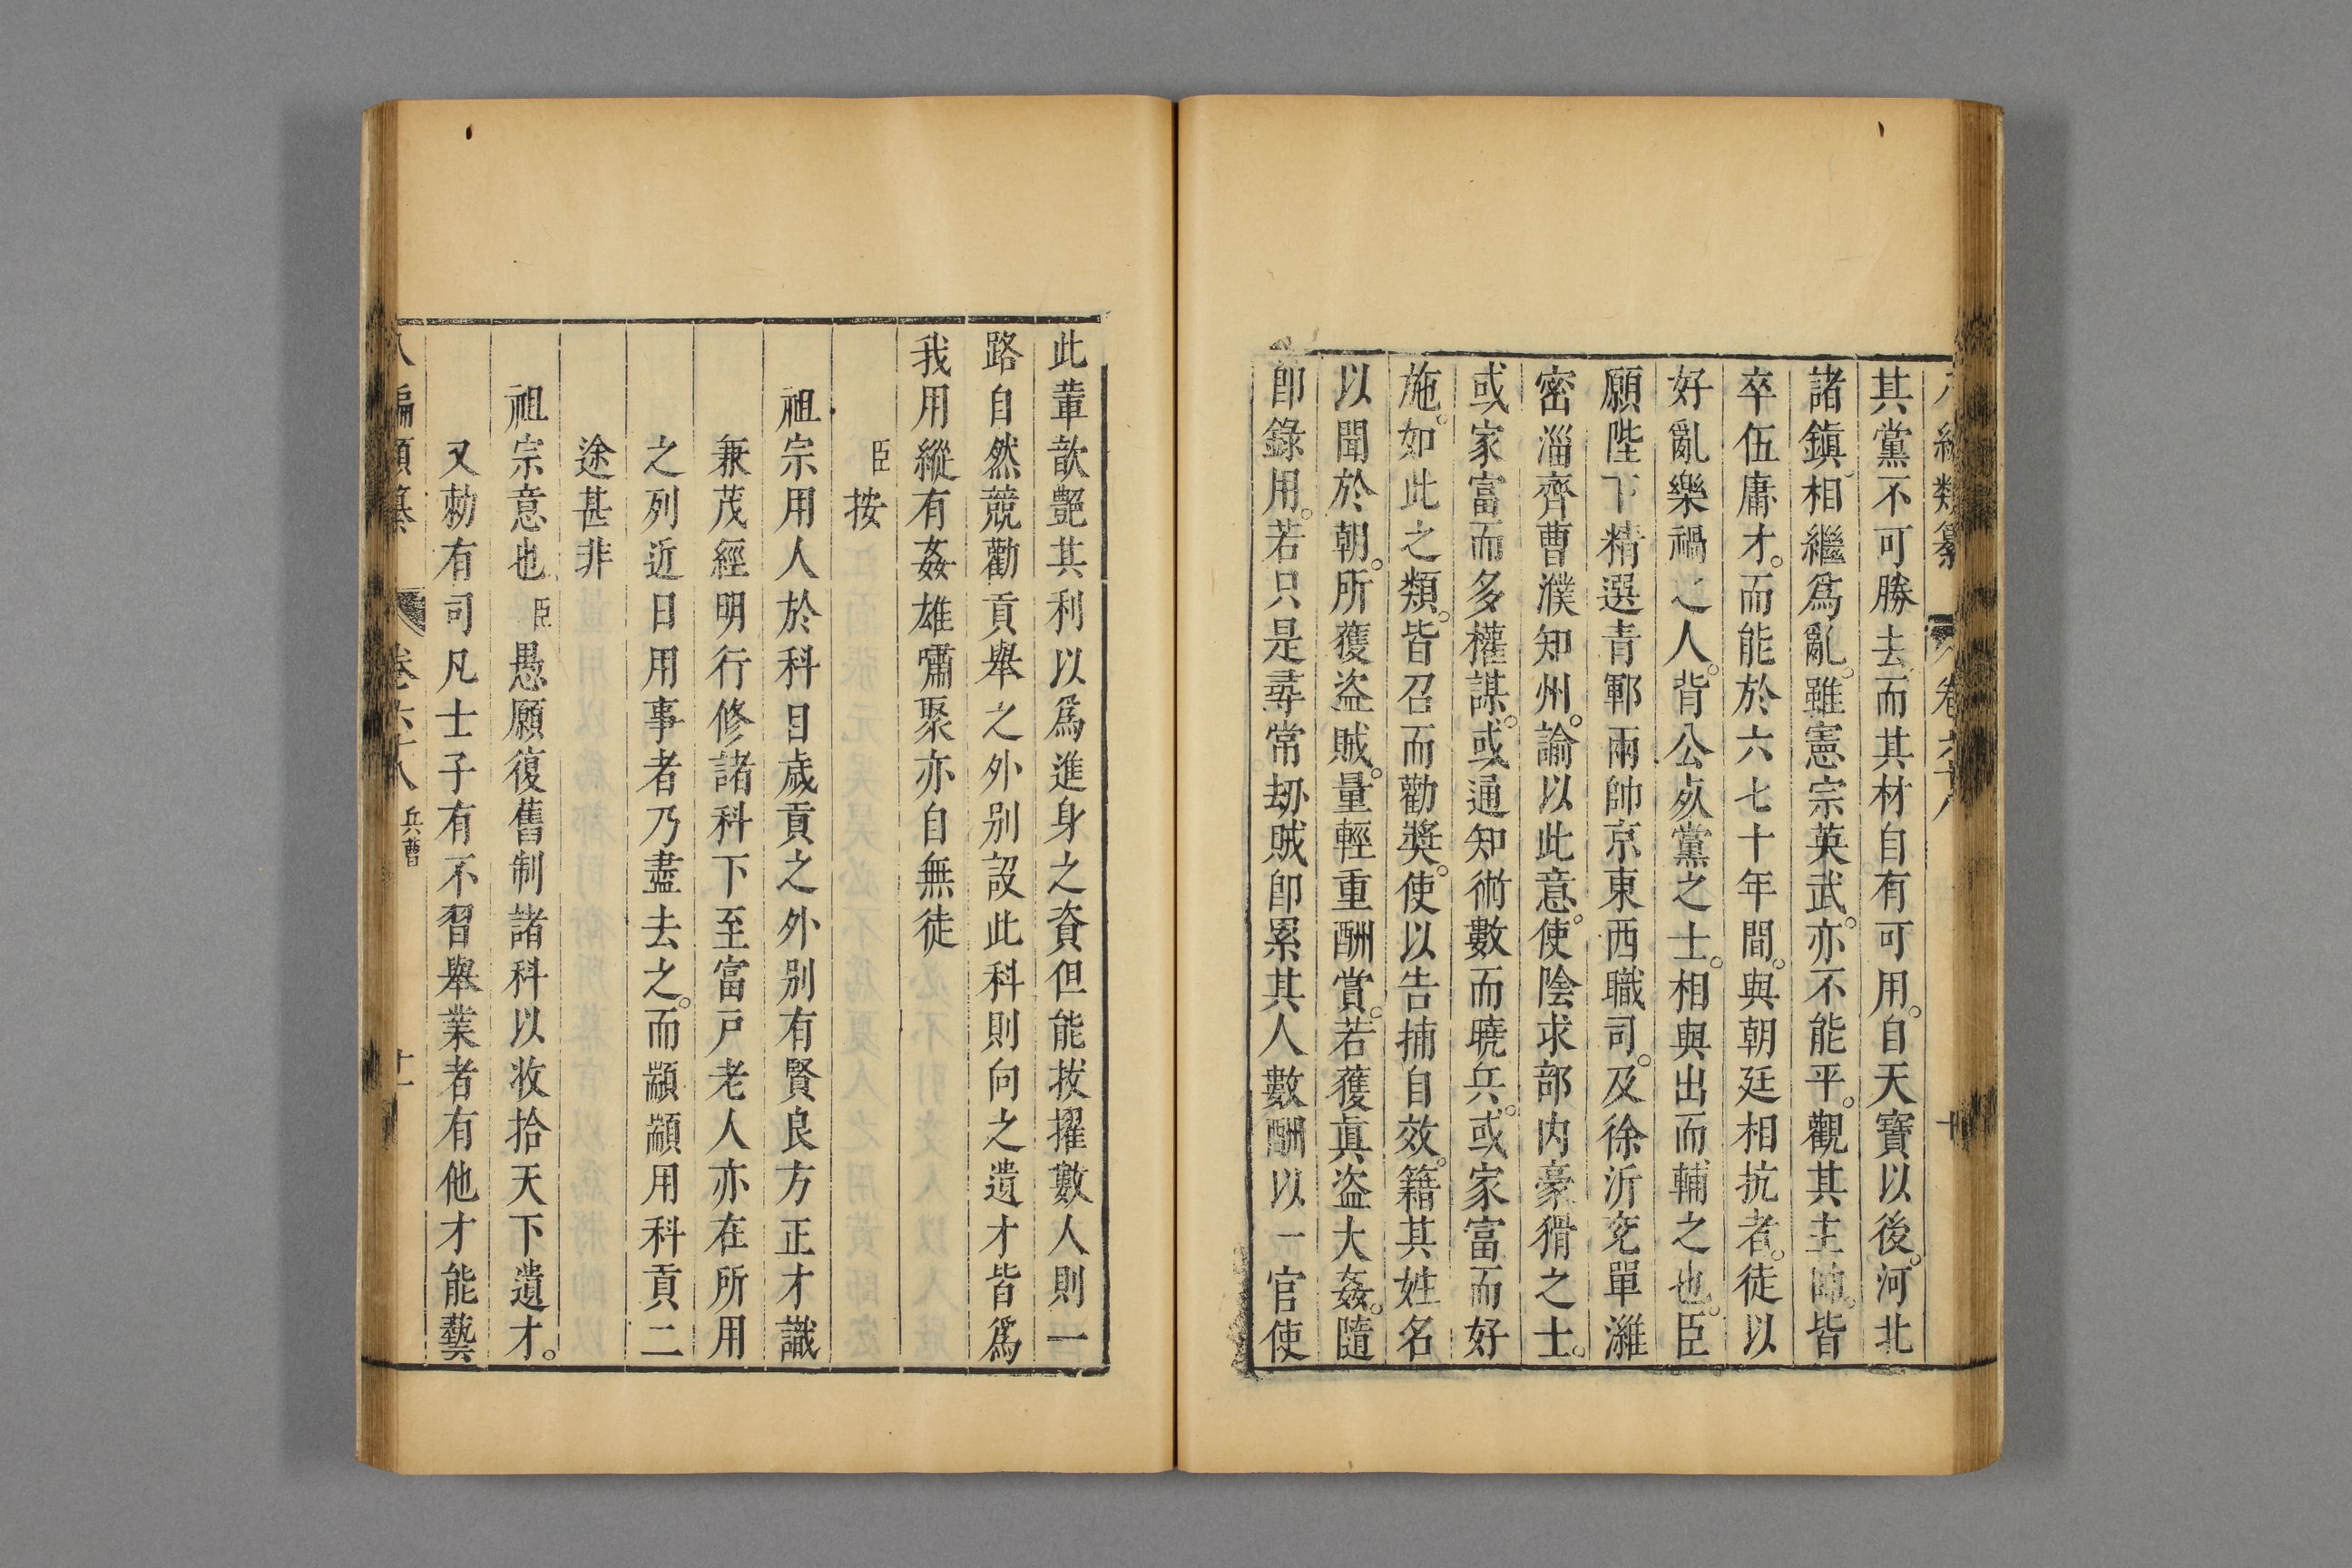 編類纂 卷六十八 十
其黨不可勝去而其材自有可用。自天寶以後。河北
諸鎮相繼爲亂。雖憲宗英武。亦不能平。觀其主帥。皆
卒伍庸才。而能於六七十年間。與朝廷相抗者。徒以
好亂樂禍之人。背公死黨之士。相與出而輔之也。臣
願陛下精選青鄆兩帥京東西職司。及徐沂兗單濰
密淄齊曹濮知州。諭以此意。使陰求部内豪猾之士。
或家富而多權謀。或通知術數而曉兵。或家富而好
施。如此之類。皆召而勸奬。使以告捕自效。籍其姓名
以聞於朝。所獲盗賊。量輕重酬賞。若獲真盗大姦。隨
卽錄用。若只是尋常劫賊卽累其人數酬以一官使
此輩歆艷其利以爲進身之資但能拔擢數人則一
路自然競勸貢舉之外别設此科則向之遺才皆爲
我用縱有姦雄嘯聚亦自無徒
臣按
祖宗用人於科目歲貢之外别有賢良方正才識
兼茂經明行修諸科下至富戸老人亦在所用
之列近日用事者乃盡去之。而顓顓用科貢二
途甚非
祖宗意也臣愚願復舊制諸科以收拾天下遺才。
又勅有司凡士子有不習舉業者有他才能藝
八編類纂 卷六十八 兵曹 十一